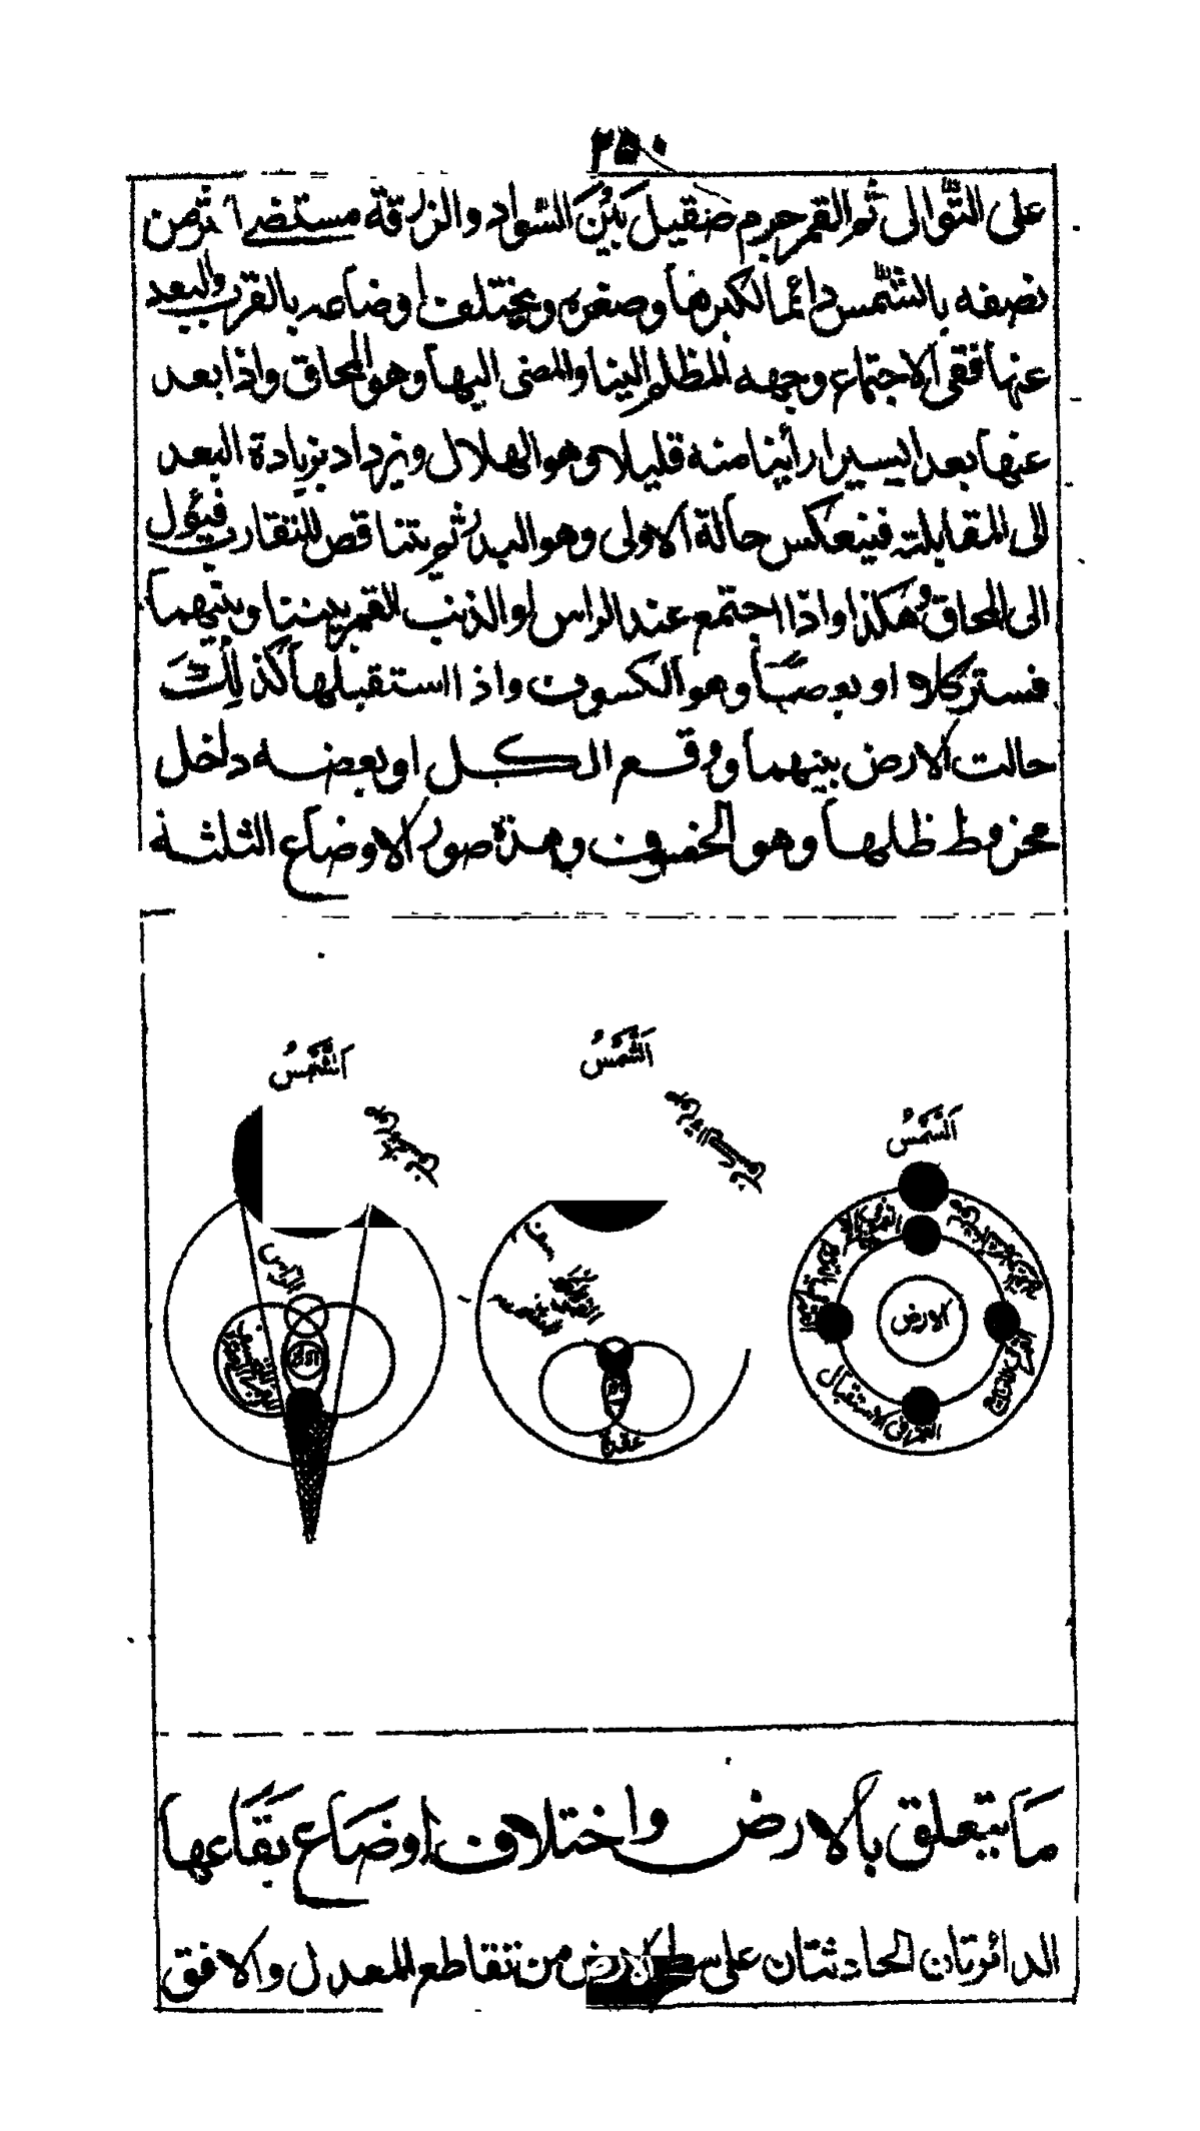 ٢٥٠
على التوالى ثم القمر جرم صقيل بين السواد والزرقة مستضئا ترمن
نصفه بالشمس دائما لكبرها وصغره ويختلف اوضاعه بالقرب والبعد
عنها ففى الاجتماع وجهه المظلم الينا والمضى اليها وهو المحاق واذا بعد
عنها بعدا يسيرا رأينا منه قليلا وهو الهلال ويزداد بزيادة البعد
الى المقابلته فينعكس حالة الاولى وهو البدر ثم يتناقص للتقارب فيؤل
الى المحاق وهكذا واذا اجتمع عند الراس او الذنب القمر بيننا وبينهما
فستر كلا او بعضا وهو الكسوف واذا استقبلها كذلك
حالت الارض بينهما ووقع الكل او بعضه داخل
مخروط ظلها وهو الخسوف وهذه صور الاوضاع الثلثة
الشمس
الشمس
الشمس
الراس
الارض
القمر فى الاستقبال
عقدة
ما يتعلق بالارض واختلاف اوضاع بقاعها
الدائرتان الحادثتان على سطح الارض من تقاطع المعدل والافق